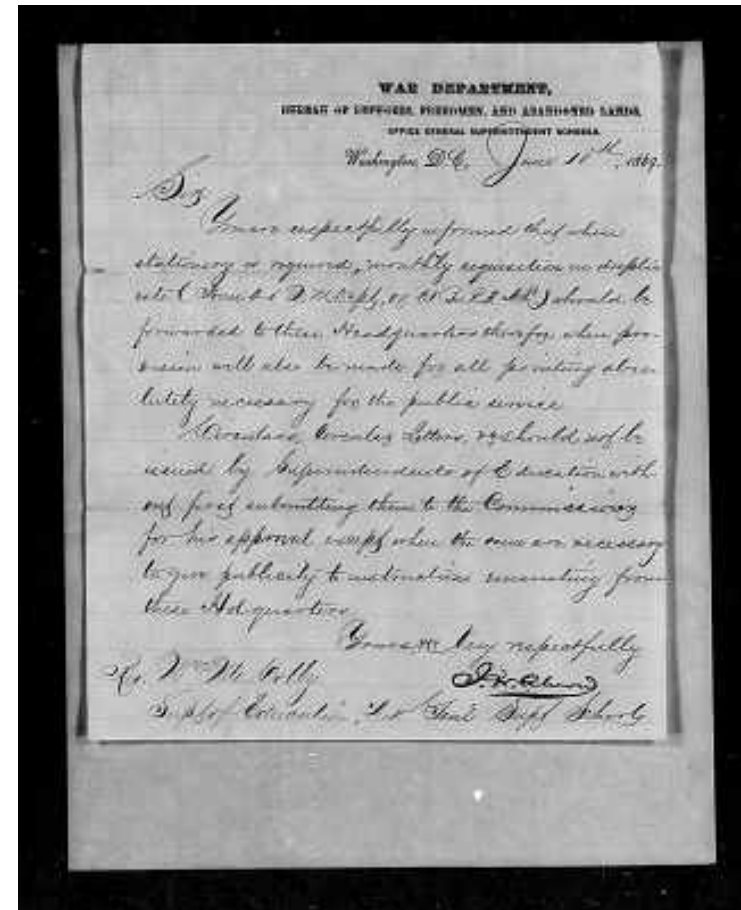 WAR DEPARTMENT,
BUREAU OF REFUGEES, FREEDMEN, AND ABANDONED LANDS,
OFFICE GENERAL SUPERINTENDENT SCHOOLS.
Washington, D.C. June 10th, 1869.
Sir
You are respectfully informed that when
stationery is required, monthly requisition in duplic-
ate should be
forwarded to these Headquarters therefor, when pro-
vision will also be made for all printing abso-
lutely necessary for the public service
Circulars, Circular Letters, &c should not be
issued by Superintendents of Education with-
out first submitting them to the Commissioner
for his approval except when the same are necessary
to give publicity to instructions emanating from
these Hd quarters.
Yours Very respectfully
J. W. Alvord
Supt of Education Genl Supt Schools